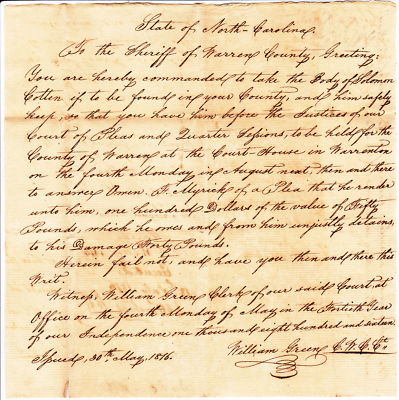 State of North-Carolina,
To the Sheriff of Warren County, Greeting:
You are hereby commanded to take the Body of Solomon
Cotten if to be found in your County, and him safely
keep, so that you have him before the Justices of our
Court of Pleas and Quarter Sessions, to be held for the
County of Warren at the Court-House in Warrenton
on the fourth Monday in August next, then and there
to answer Owen F. Myrick of a Plea that he render
unto him, one hundred Dollars of the value of Fifty
Pounds, which he owes and from him unjustly detains,
to his Damage Forty Pounds.
Herein fail not, and have you then and there this
Writ.
Witness, William Green Clerk of our said Court at
Office on the fourth Monday of May in the Fortieth Year
of our Independence one thousand eight hundred and sixteen.
Issued, 30th May, 1816. William Green C.W.C.Ct.